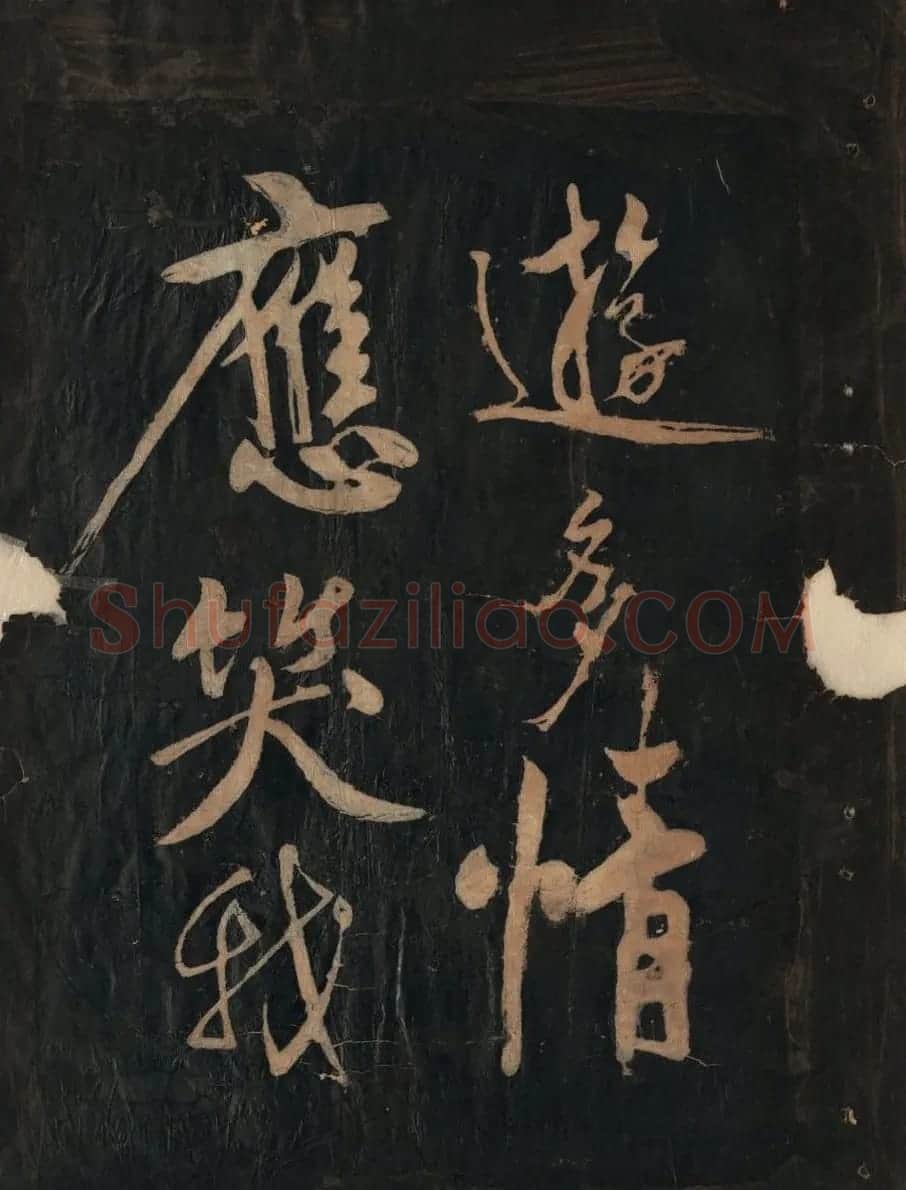 遊多情
應笑我
Shufaziliao.COM